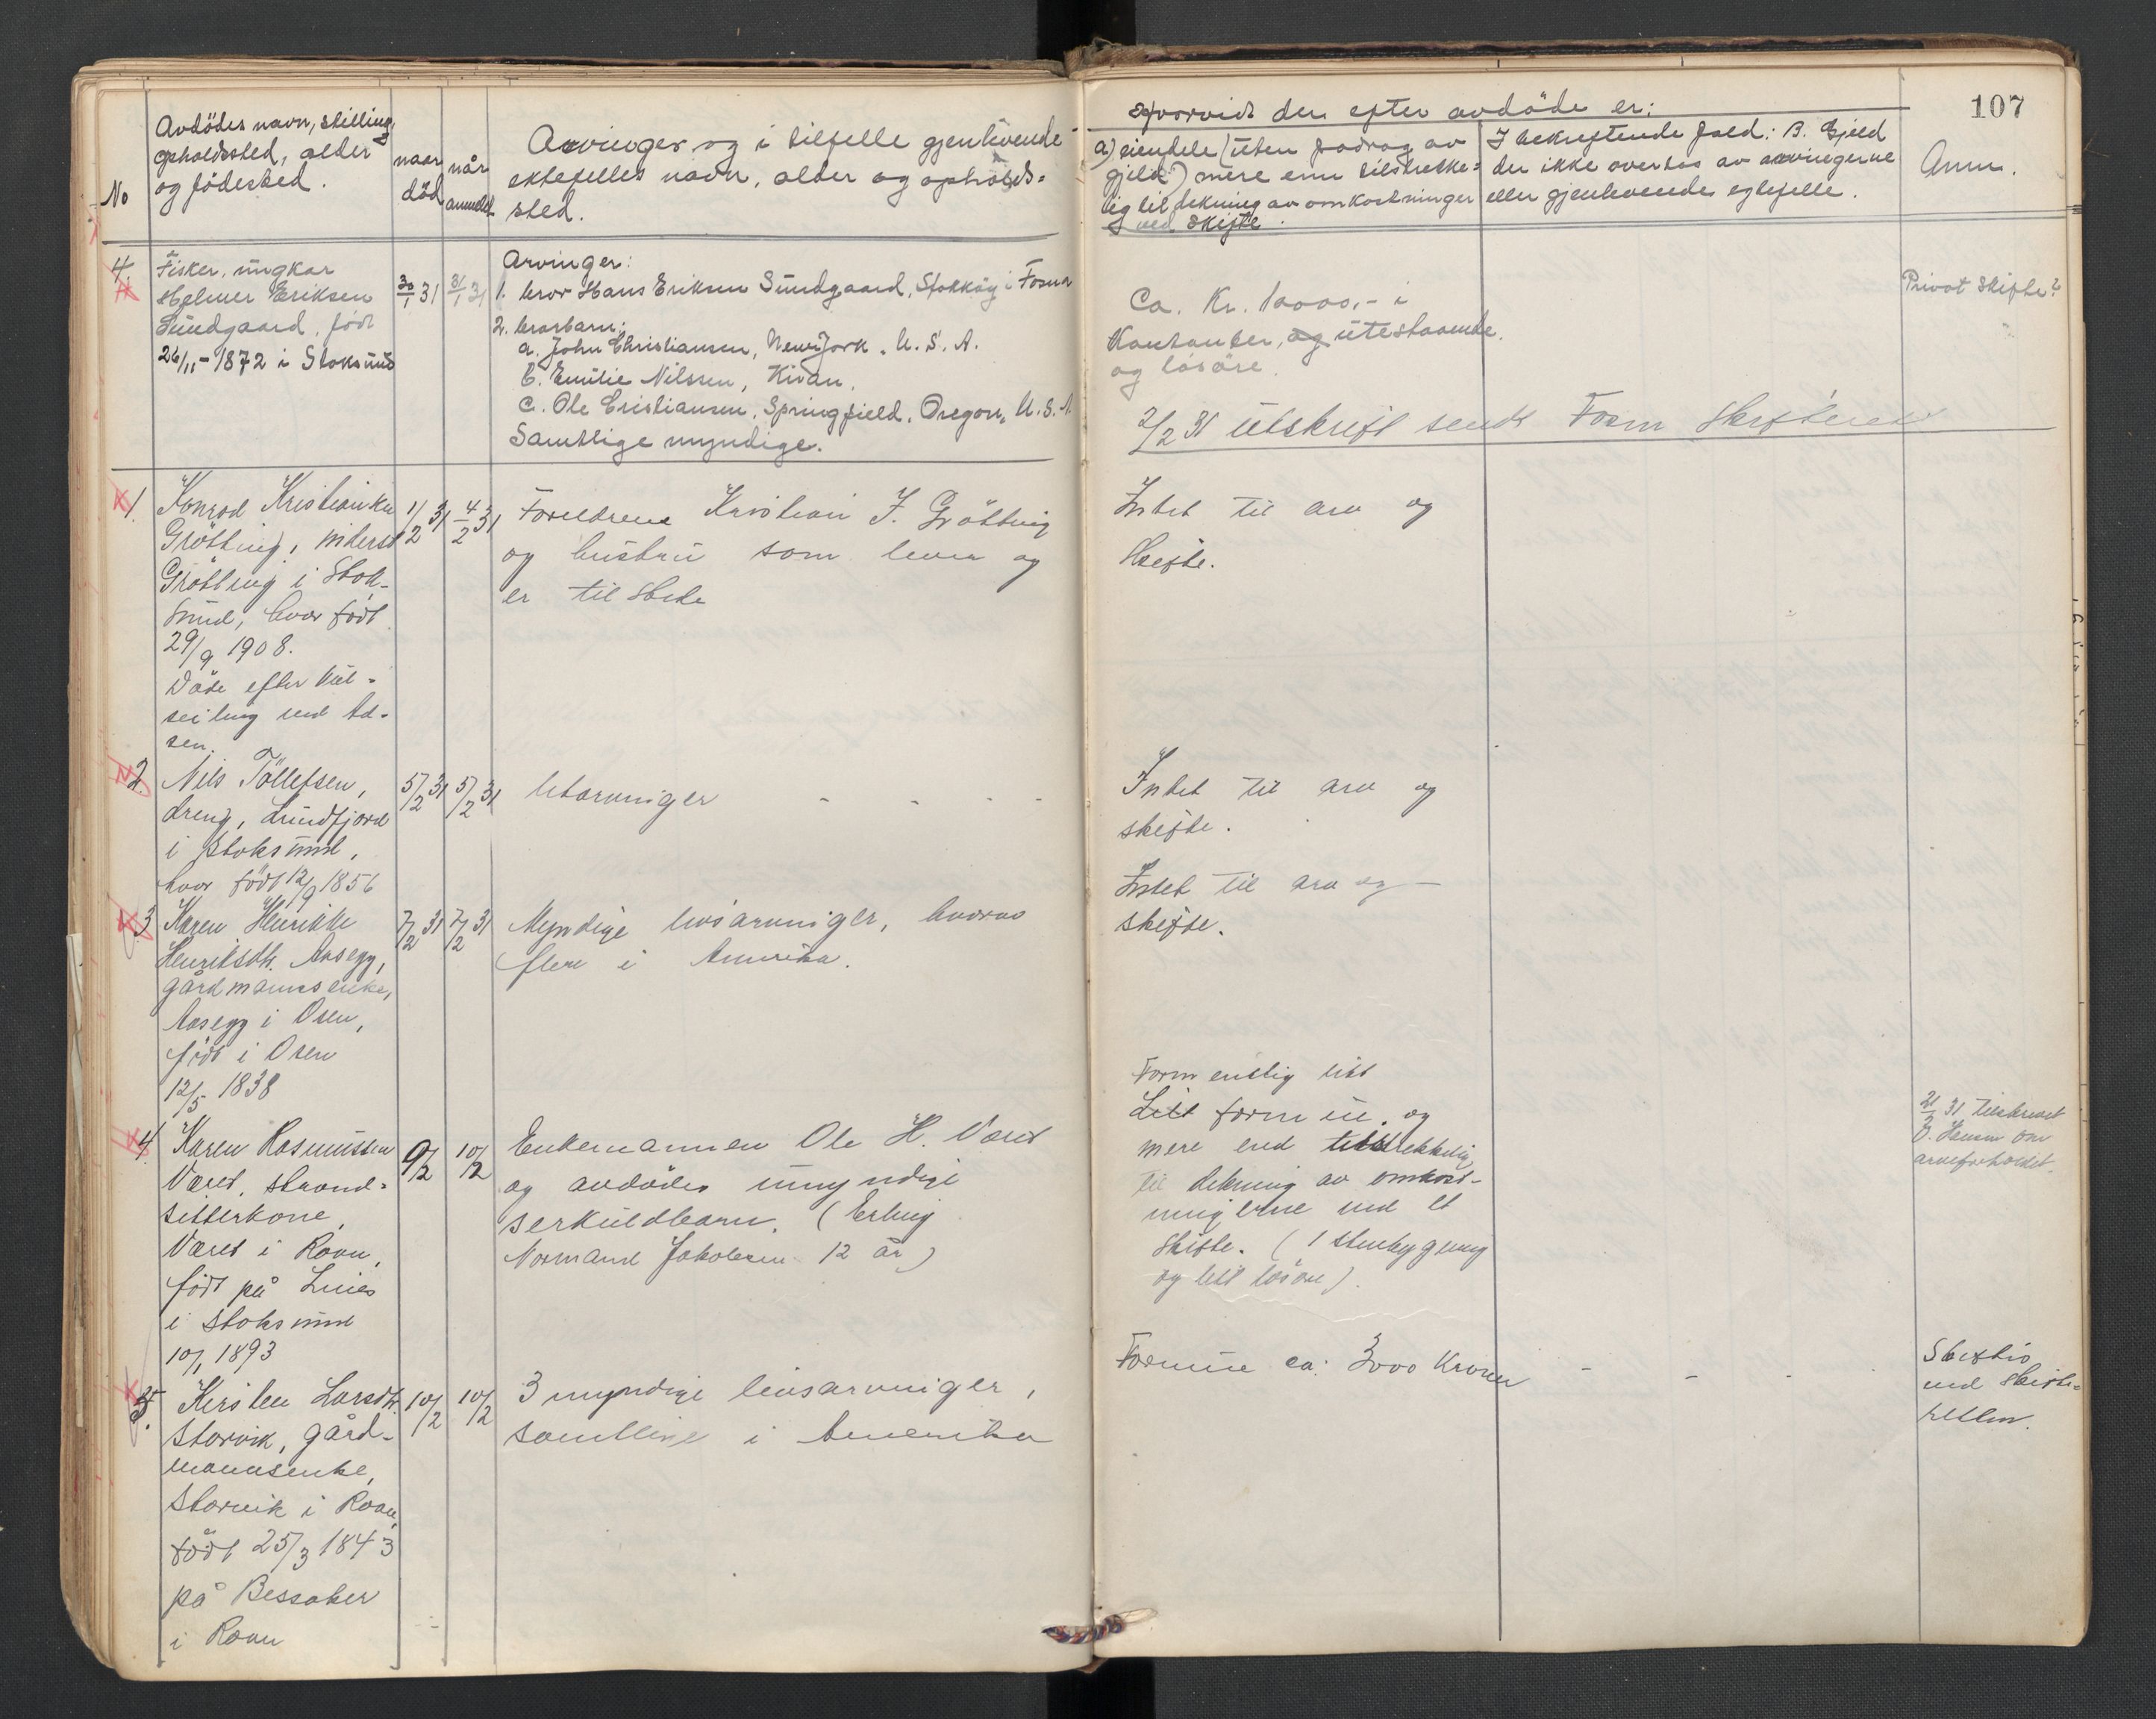 107
No
Avdödes navn, stilling,
opholdssted, alder
og födested.
naar
död
når
anmeldt
Arvinger og i tilfelle gjenlevende
ektefelles navn, alder og opholds-
sted.
Hvorvidt den efter avdöde er:
a) eiendele (uten fradrag av
gjeld) mere enn tilstrekke-
lig til dekning av omkostninger
ved skifte.
I bekreftende fald: B. Gjeld
der ikke overtas av arvingerne
eller gjenlevende egtefelle.
Anm.
4.
Fisker, ungkar
Helmer Eriksen
Sundgaard, född
26/11-1872 i Stoksund
30/1 31
31/1 31
Arvinger:
1. bror Hans Eriksen Sundgaard, Stokköy i Fosna
2. brorbarn:
a. John Christiansen, New York, U.S.A.
b. Emilie Nilssen, Kiran.
c. Ole Cristiansen, Springfield, Oregon, U.S.A.
Samtlige myndige.
Ca. Kr. 10000,- i
Kontanter, og utestaaende
og lösöre.
2/2 31 utskrift sendt Fosen Skifterett
Privat skifte?
1.
Konrad Kristiansen
Gröttring, inderst
Gröttring i Stok-
sund, hvor född
29/9 1908.
Döde efter kul-
seiling ved Ad-
sen.
1/2 31
4/2 31
Foreldrene Kristian J. Gröttring
og hustru som lever og
er til stede
Intet til arv og
skifte.
2.
Nils Tollefsen,
dreng, Lundfjord
i Stoksund,
hvor född 12/9 1856
5/2 31
5/2 31
Utarvinger - - - -
Intet til arv og
skifte.
3
Karen Henrikke
Henriksdtr. Aasegg,
gårdmannsenke,
Aasegg i Osen,
född i Osen
12/5 1838
7/2 31
7/2 31
Myndige livsarvinger, hvorav
flere i Amerika.
Intet til arv og -
skifte.
4.
Karen Rasmussen
Været, strand-
sitterkone,
Været i Roan,
född på Linès
i Stoksund
10/1 1893
9/2
10/2
Enkemannen Ole H. Været
og avdödes umyndige
særkuldbarn. (Erling
Normann Jakobsen 12 år)
Formentlig litt
Litt formue, og
mere end tilstrekkelig
til dekning av omkost-
ningerne ved et
skifte. (1 stuebygning
og litt lösöre).
21/2 31 tilskrevet
O. Hansen om
arveforholdet.
5.
Kirsten Larsdtr.
Storvik, gård-
mannsenke,
Storvik i Roan,
född 25/3 1843
på Bessaker
i Roan
10/2
10/2
3 myndige livsarvinger,
samtlige i Amerika
Formue ca: 3000 Kroner - - -
Skiftes
ved skifte-
retten.